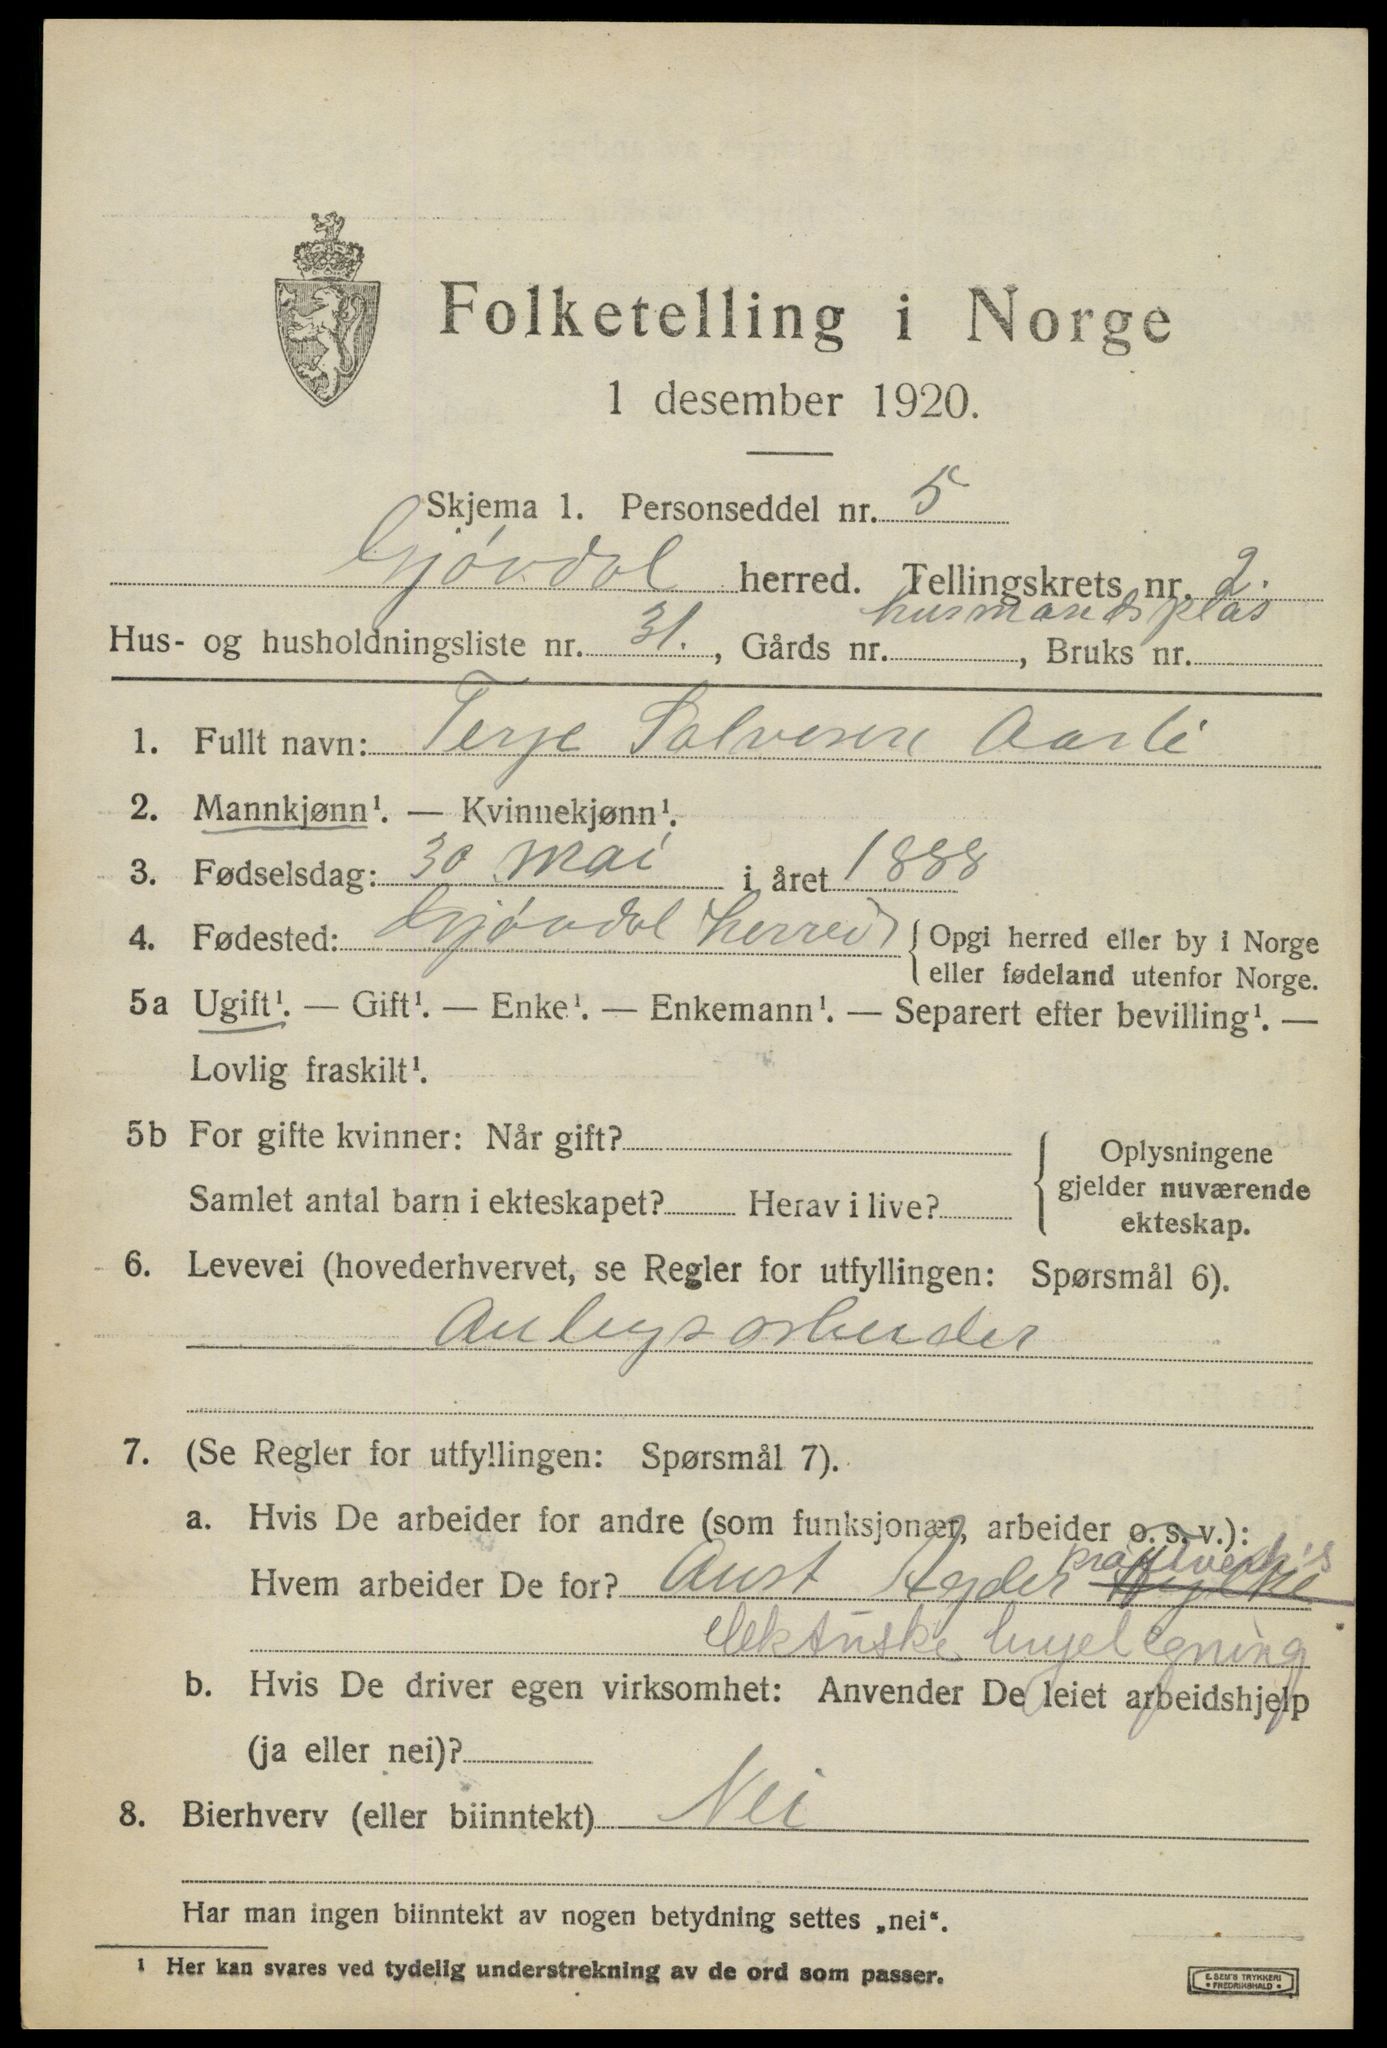 Folketelling i Norge
1 desember 1920.
Skjema 1. Personseddel nr. 5
Gjövdal herred. Tellingskrets nr. 2.
husmandsplas
Hus- og husholdningsliste nr. 31., Gårds nr. , Bruks nr.
1. Fullt navn: Terje Salvesen Aarli
2. Mannkjønn¹. — Kvinnekjønn¹.
3. Fødselsdag: 30 mai i året 1888
4. Fødested: Gjövdal herred { Opgi herred eller by i Norge
eller fødeland utenfor Norge.
5a Ugift¹. — Gift¹. — Enke¹. — Enkemann¹. — Separert efter bevilling¹. —
Lovlig fraskilt¹.
5b For gifte kvinner: Når gift?
Samlet antal barn i ekteskapet? Herav i live?
Oplysningene
gjelder nuværende
ekteskap.
6. Levevei (hovederhvervet, se Regler for utfyllingen: Spørsmål 6).
Anlegsarbeider
7. (Se Regler for utfyllingen: Spørsmål 7).
a. Hvis De arbeider for andre (som funksjonær, arbeider o. s. v.):
Hvem arbeider De for? Aust Agder Fylke
elektriske
b. Hvis De driver egen virksomhet: Anvender De leiet arbeidshjelp
(ja eller nei)?
8. Bierhverv (eller biinntekt) Nei
Har man ingen biinntekt av nogen betydning settes „nei“.
¹ Her kan svares ved tydelig understrekning av de ord som passer.
E. SEM'S TRYKKERI
• FREDRIKSHALD •